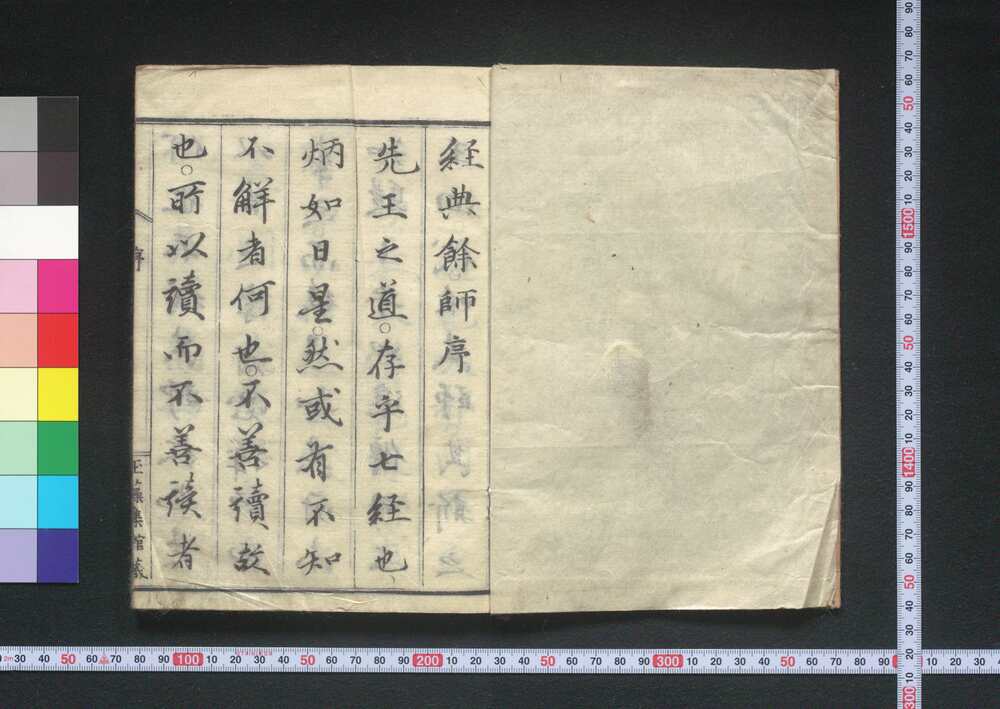 経典餘師序
先王之道○存乎七経也
炳如日星○然或有不知
不解者何也○不善讀故
也○所以讀而不善読者
序